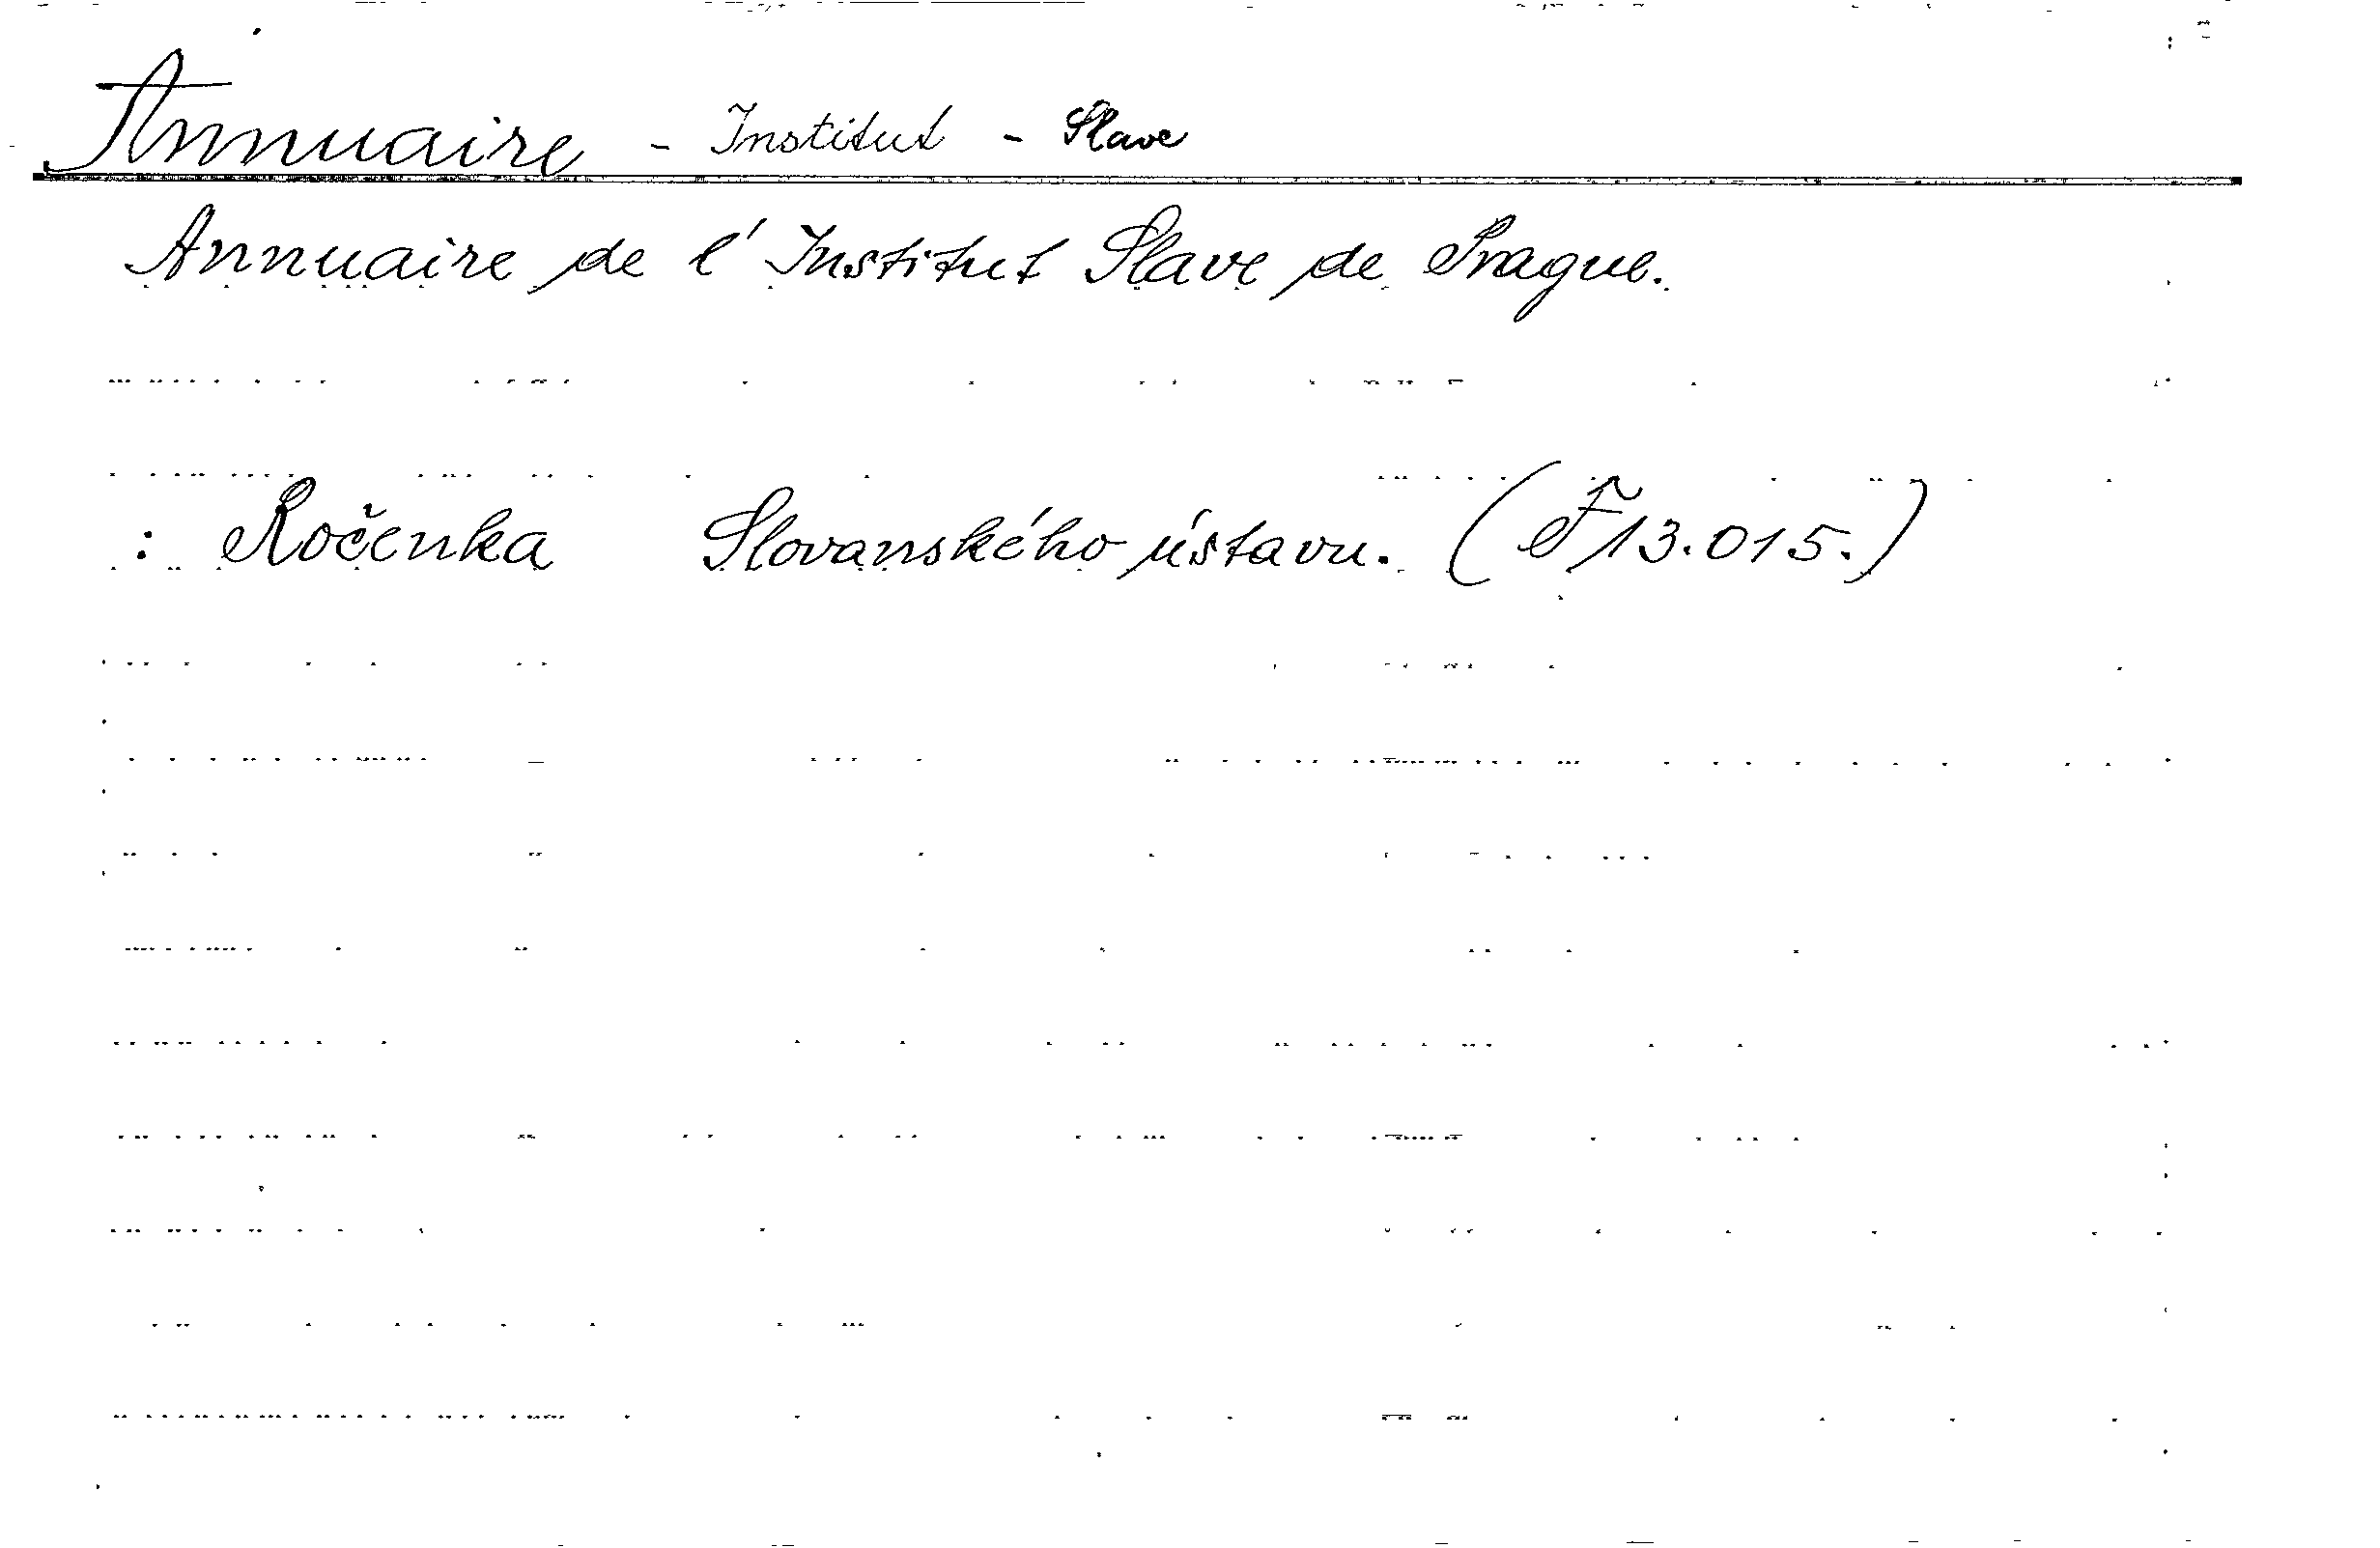 Annuaire - Institut - Slave
Annuaire de l'Institut Slave de Prague.
: Ročenka Slovanského ústavu. (F 13.015.)